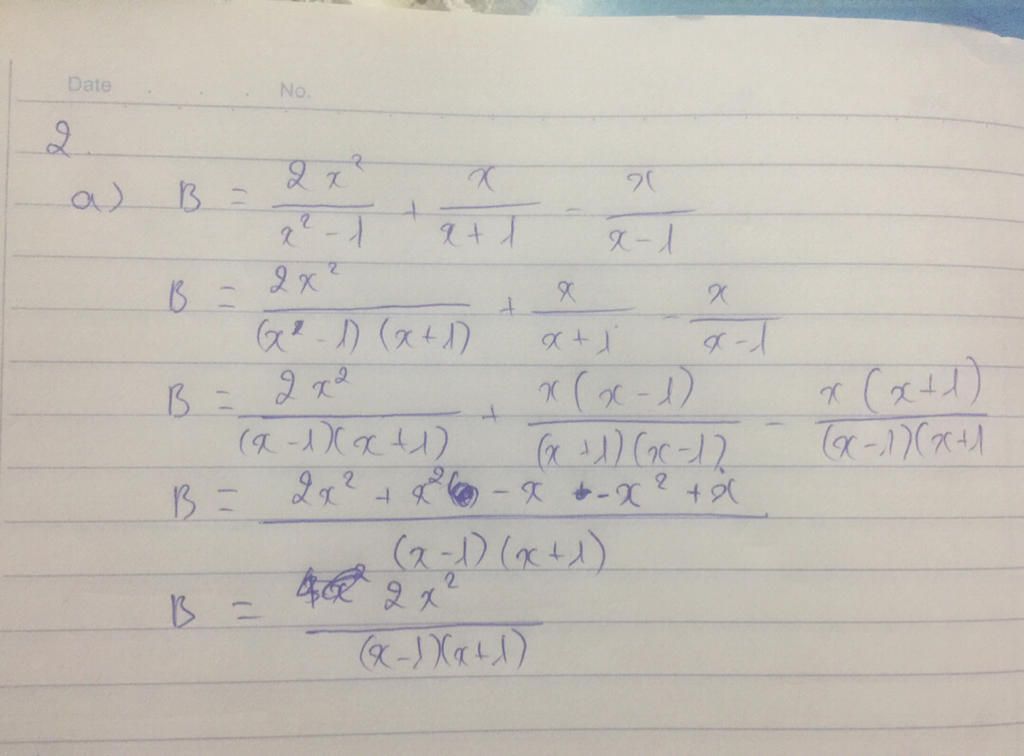 Date . . . No.
2.
a) B = \frac{2x^2}{x^2 - 1} + \frac{x}{x + 1} - \frac{x}{x - 1}
B = \frac{2x^2}{(x^2 - 1)(x + 1)} + \frac{x}{x + 1} - \frac{x}{x - 1}
B = \frac{2x^2}{(x - 1)(x + 1)} + \frac{x(x - 1)}{(x + 1)(x - 1)} - \frac{x(x + 1)}{(x - 1)(x + 1}
B = \frac{2x^2 + x^2 - x - x^2 + x}{(x - 1)(x + 1)}
B = \frac{2x^2}{(x - 1)(x + 1)}